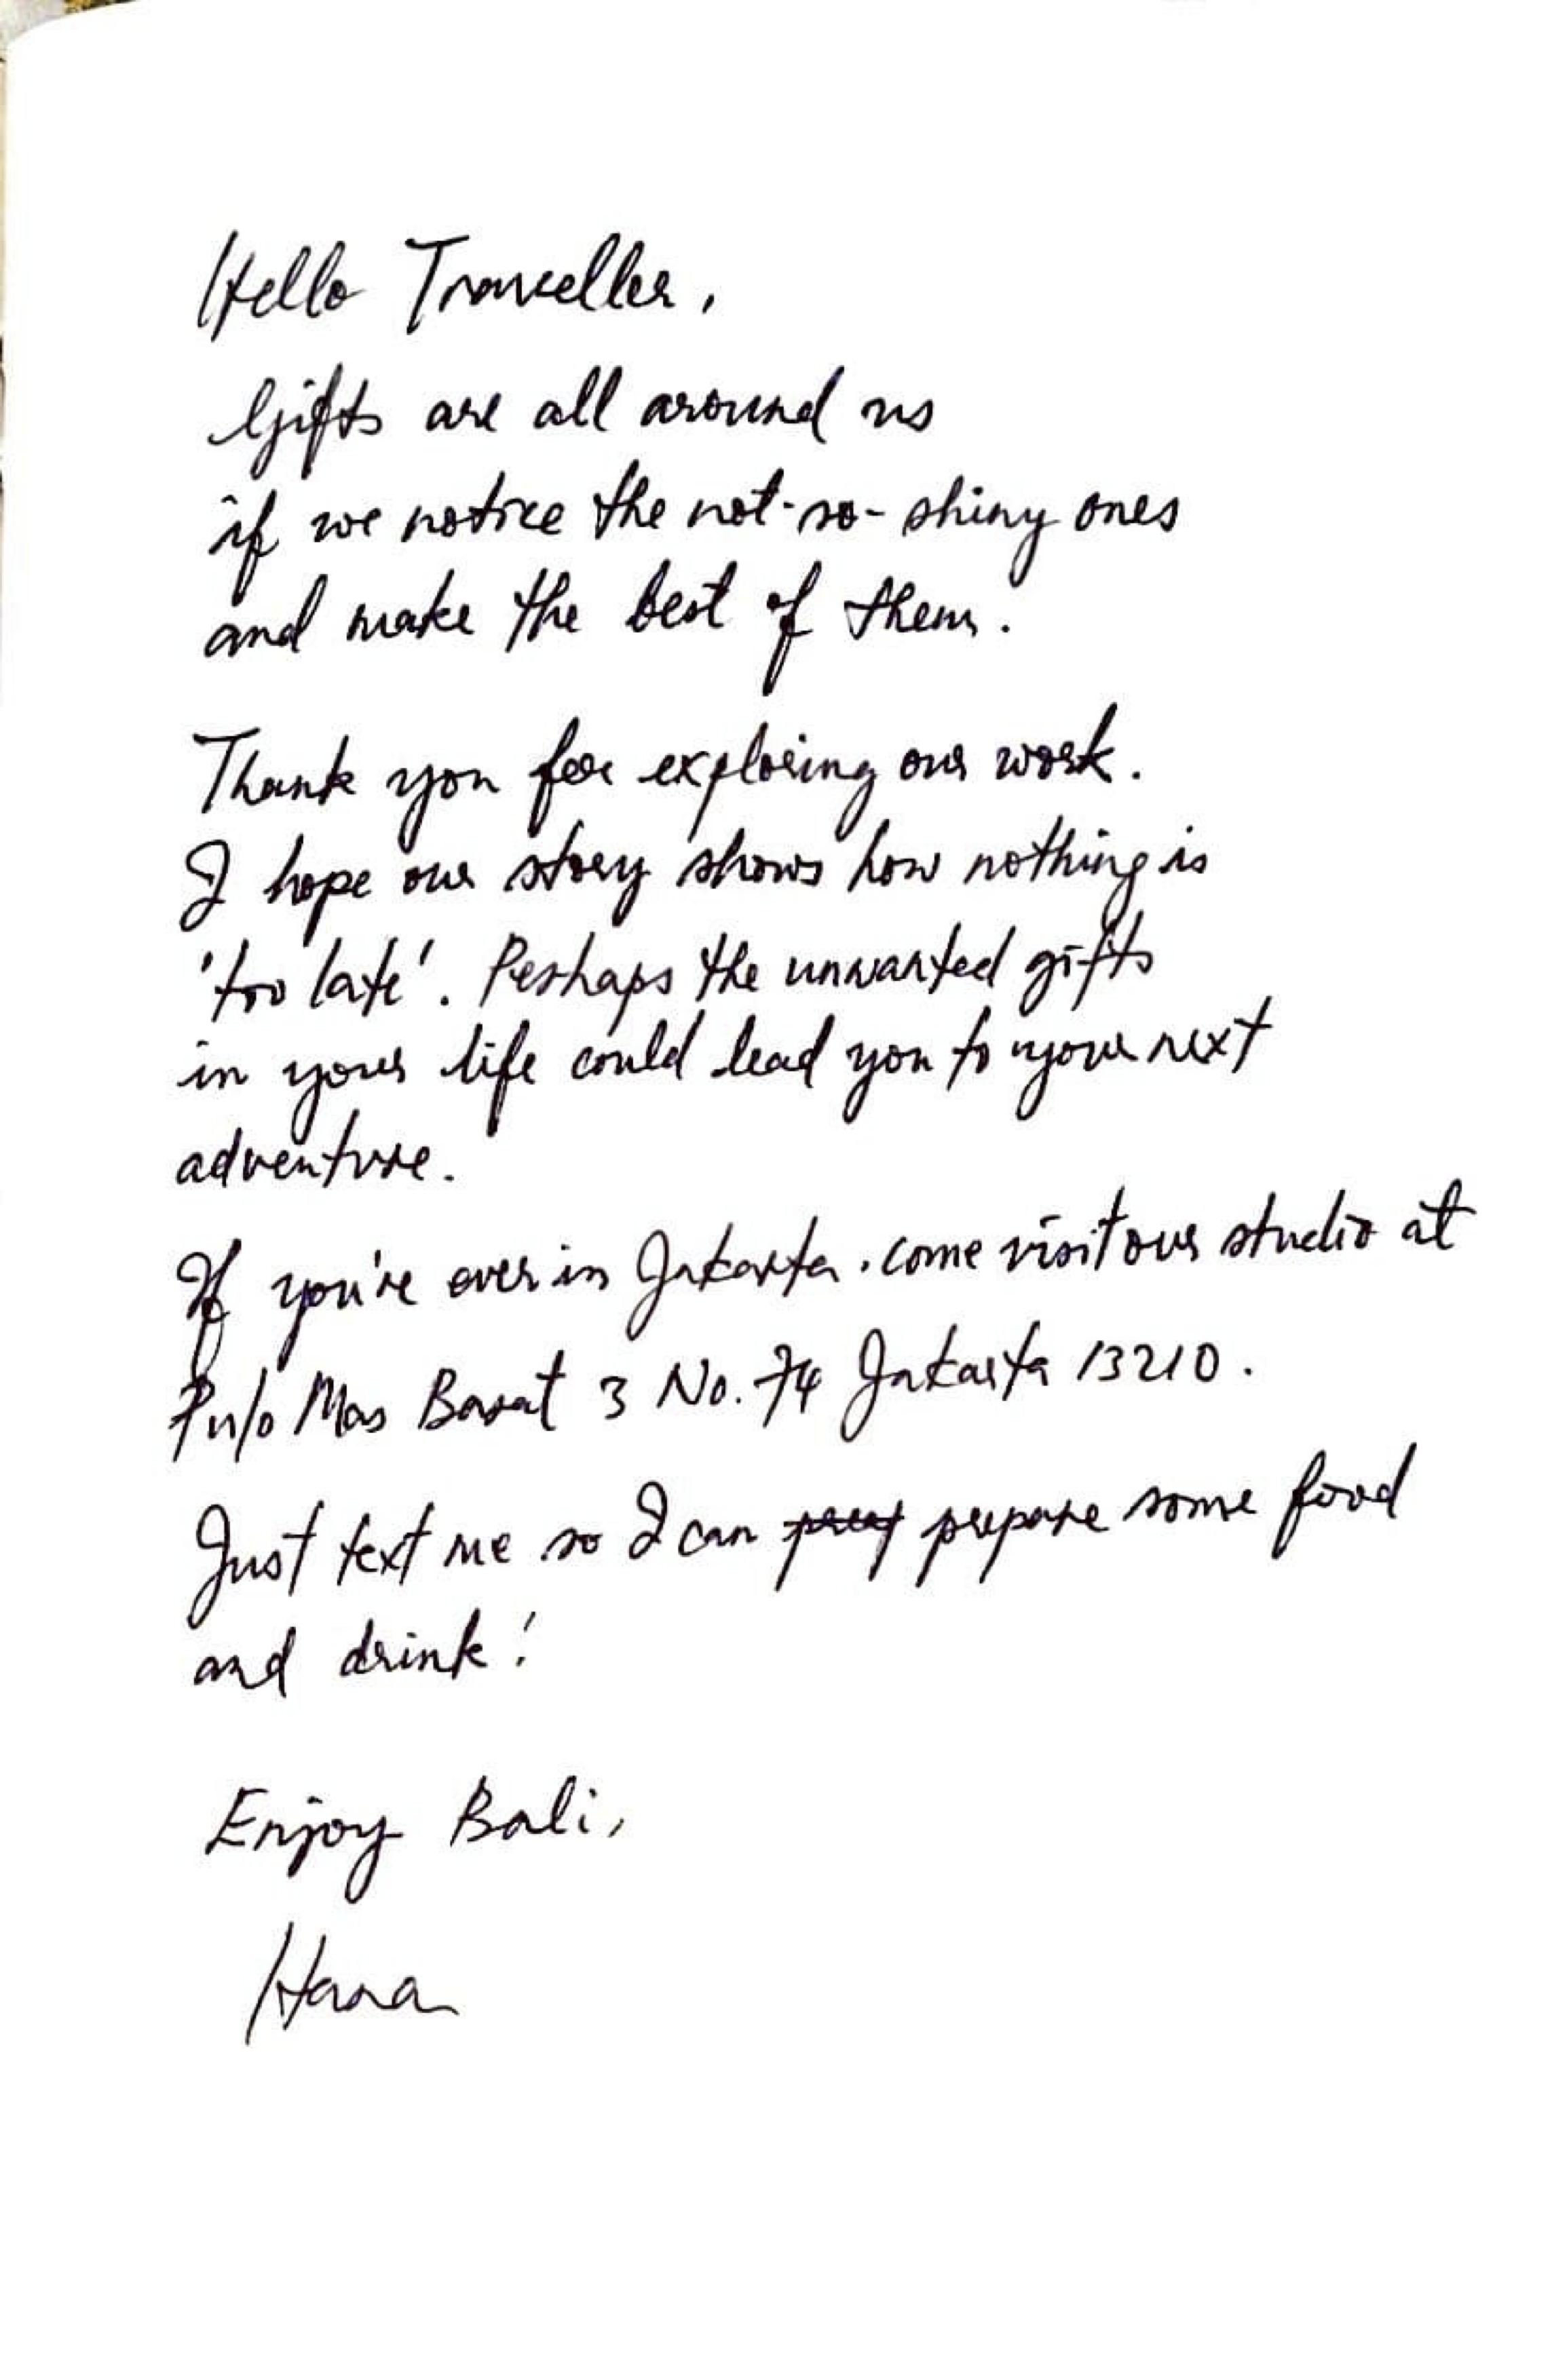 Hello Traveller,
Gifts are all around us
if we notice the not-so-shiny ones
and make the best of them.
Thank you for exploring our work.
I hope our story shows how nothing is
'too late'. Perhaps the unwanted gifts
in your life could lead you to your next
adventure.
If you're over in Jakarta, come visit our studio at
Pulo Mas Barat 3 No. 74 Jakarta 13210.
Just text me so I can prepare some food
and drink!
Enjoy Bali,
Hana